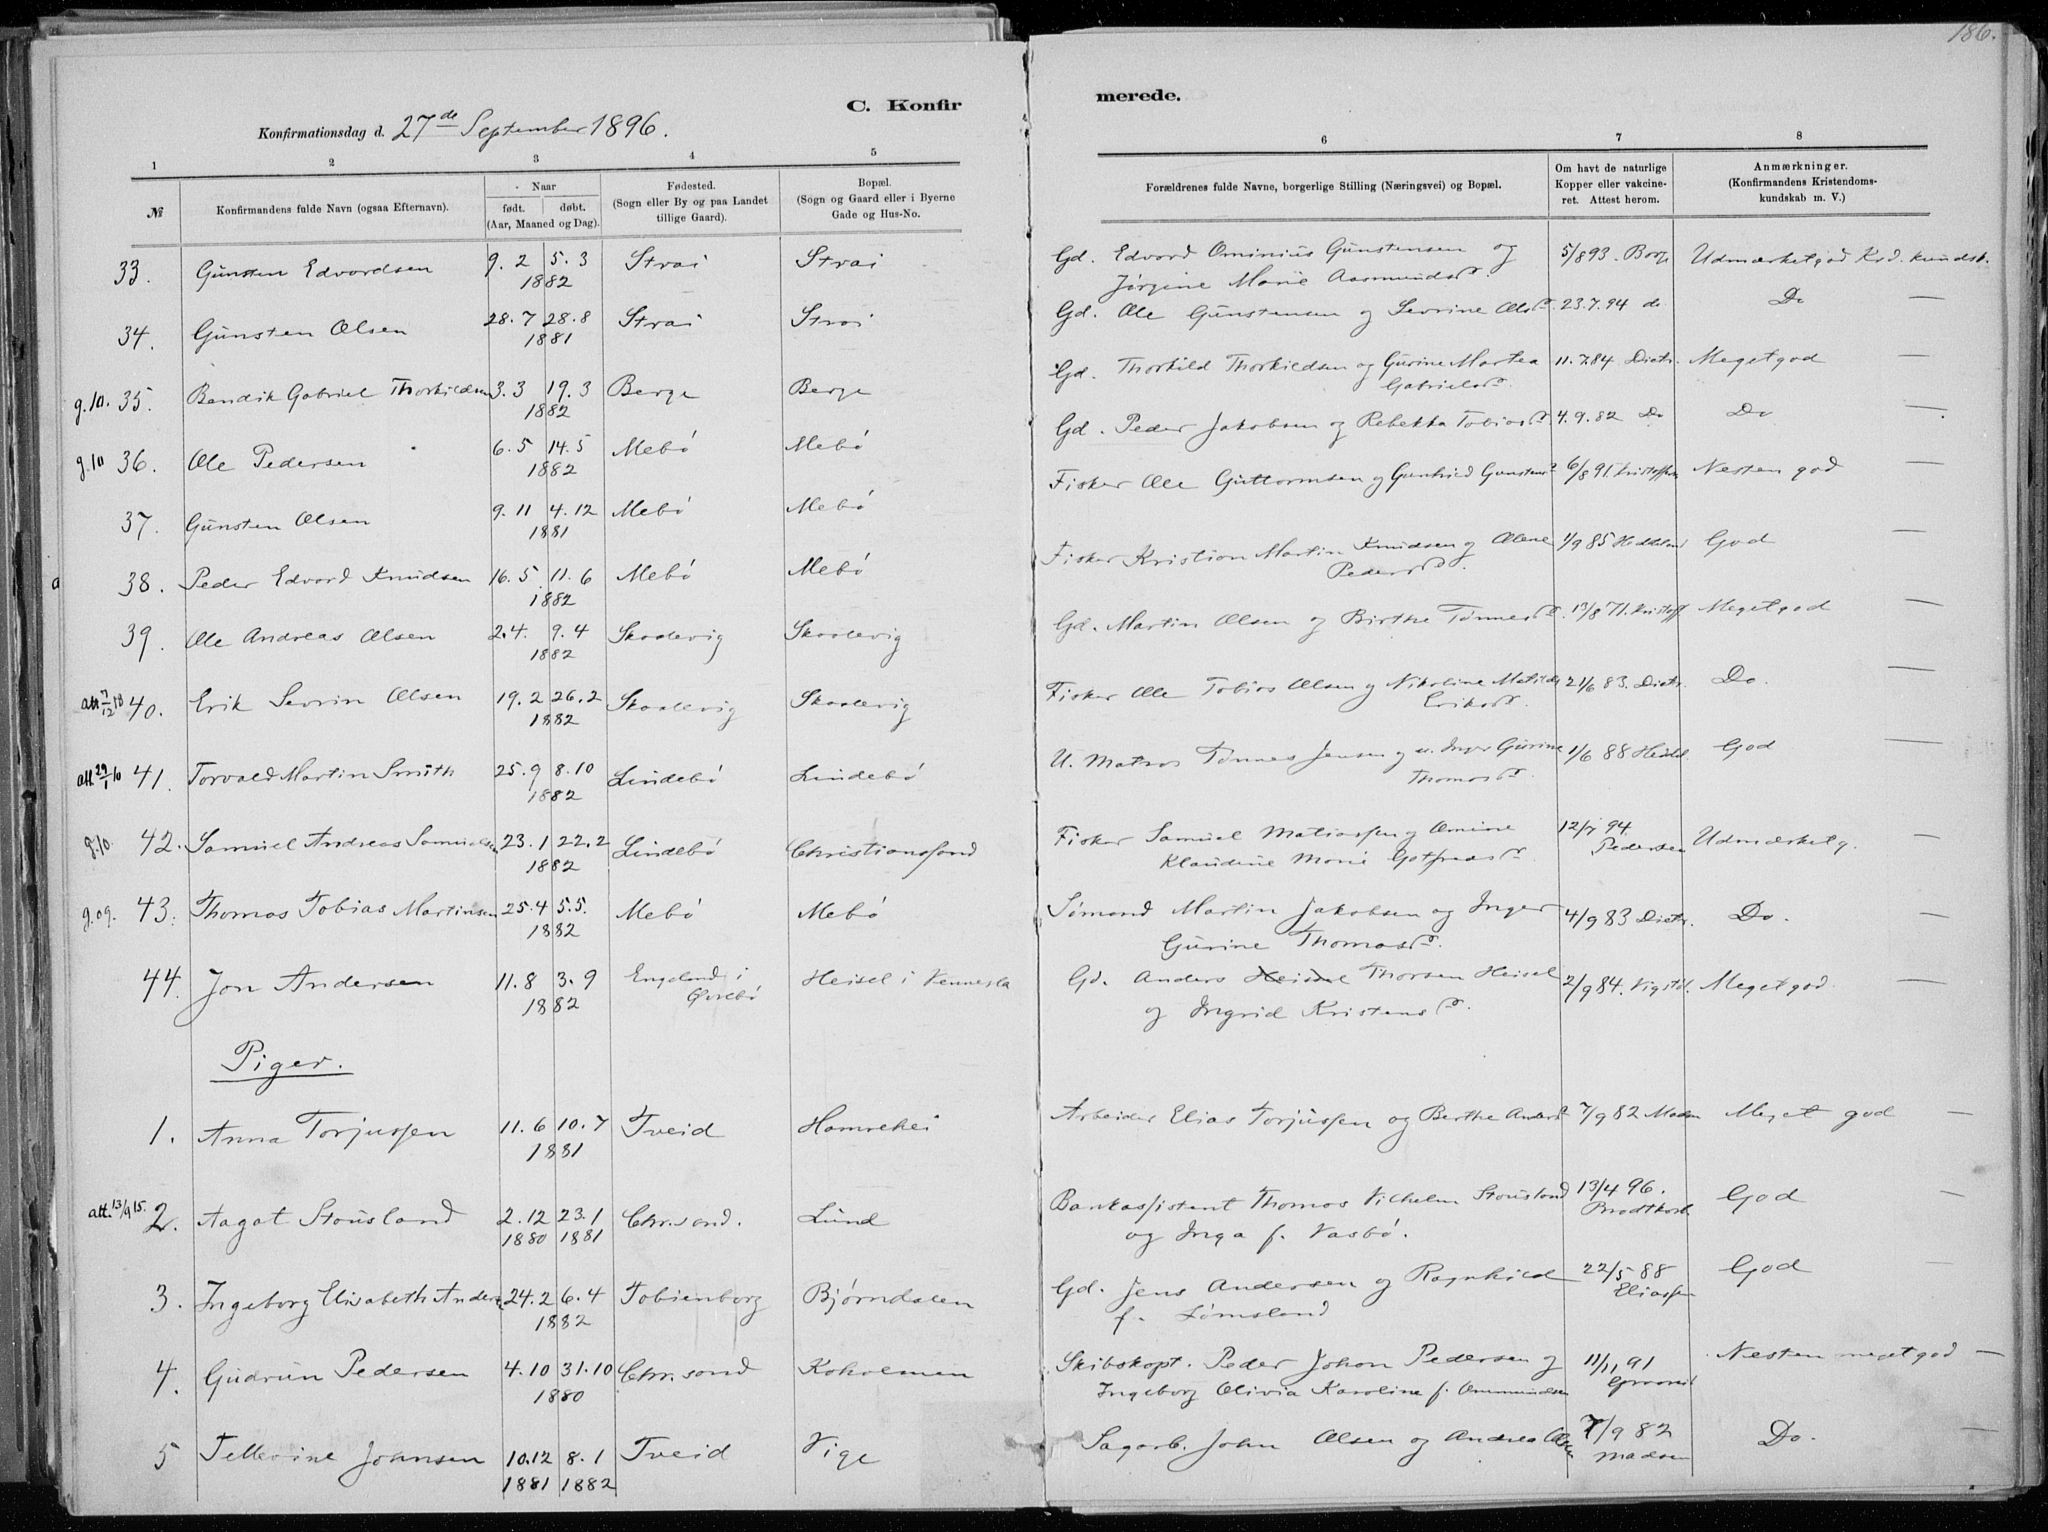 186.
C. Konfir
merede.
Konfirmationsdag d. 27de September 1896.
1 2 3 4 5 6 7 8
№
Konfirmandens fulde Navn (ogsaa Efternavn).
Naar
født. døbt.
(Aar, Maaned og Dag).
Fødested.
(Sogn eller By og paa Landet
tillige Gaard).
Bopæl.
(Sogn og Gaard eller i Byerne
Gade og Hus-No.
Forældrenes fulde Navne, borgerlige Stilling (Næringsvei) og Bopæl.
Om havt de naturlige
Kopper eller vakcine-
ret. Attest herom.
Anmærkninger.
(Konfirmandens Kristendoms-
kundskab m. V.)
33. Gunsten Edvardsen 9.2 5.3 Strai Strai Gd. Edvard Ominius Gunstensen og 5/893. Udmærketgod Krd. kundsk.
1882 Jørgine Marie Aasmundsd.
34. Gunsten Olsen 28.7 28.8 Strai Strai Gd. Ole Gunstensen og Sevrine Olsd. 23.7.94 do Do —
1881
g.10. 35. Bendik Gabriel Thorkildsen 3.3 19.3 Berge Berge Gd. Thorkild Thorkildsen og Gurine Martea 11.7.84 Dietr. Megetgod —
1882 Gabrielsd.
g.10 36. Ole Pedersen 6.5 14.5 Mebø Mebø Gd. Peder Jakobsen og Rebekka Tobiasd. 4.9.82 Do Do —
1882
37. Gunsten Olsen 9.11 4.12 Mebø Mebø Fisker Ole Guttormsen og Gunhild Gunstensd. 6/8 91. Kristoffersen Nesten god —
1881
38. Peder Edvard Knudsen 16.5 11.6 Mebø Mebø Fisker Kristian Martin Knudsen og Olene 1/9 85 God —
1882 Pedersd.
39. Ole Andreas Olsen 2.4. 9.4 Skaalevig Skaalevig Gd. Martin Olsen og Birthe Tønnesd. 13/8 71. Kristoff Megetgod —
1882
att 7/12 18 40. Erik Sevrin Olsen 19.2 26.2 Skaalevig Skaalevig Fisker Ole Tobias Olsen og Nikoline Matilde 21/6 83. Dietr. Do. —
1882 Eriksd.
att 29/1 10 41. Torvald Martin Smith 25.9 8.10 Lindebø Lindebø U. Matros Tønnes Jensen og u. Inger Gurine 1/6 88 God —
1882 Thomasd.
g.10. 42. Samuel Andreas Samuelsen 23.1 22.2 Lindebø Christianssand Fisker Samuel Matiassen og Omine 12/7 94. Pedersen Udmærketg. —
1882 Klaudine Marie Gotfredsd.
g.09. 43. Thomas Tobias Martinsen 25.4 5.5. Mebø Mebø Sømand Martin Jakobsen og Inger 4/9 83 Dietr. Do. —
1882 Gurine Thomasd.
44. Jon Andersen 11.8 3.9 Engeland i Øvrebø Heisel i Vennesla Gd. Anders Thorsen Heisel 2/9 84. Megetgod. —
1882 og Ingrid Kristensd.
Piger.
1. Anna Torjussen 11.6 10.7 Tveid Hamrehei Arbeider Elias Torjussen og Berthe Andersd. 7/9 82 Madsen Meget god —
1881
att. 13/9 15. 2. Aagot Stousland 2.12 23.1 Chr.sand. Lund Bankassistent Thomas Vilhelm Stousland 13/4 96. Brodtkorb God —
1880 1881 og Inga f. Vasbø.
3. Ingeborg Elisabeth Anders 24.2 6.4 Tobienborg Bjørndalen Gd. Jens Andersen og Ragnhild 22/5 88 Eliassen God —
1882 f. Lømsland
4. Gudrun Pedersen 4.10 31.10 Chr.sand Koholmen Skibskapt. Peder Johan Pedersen og 11/11 91 Nesten megetgod —
1880 Ingeborg Olivia Karoline f. Ommundsen
5 Tellerine Johnsen 10.12 8.1 Tveid Vige Sagarb. John Olsen og Andrea Olsen 7/9 82 Madsen Do. —
1881 1882